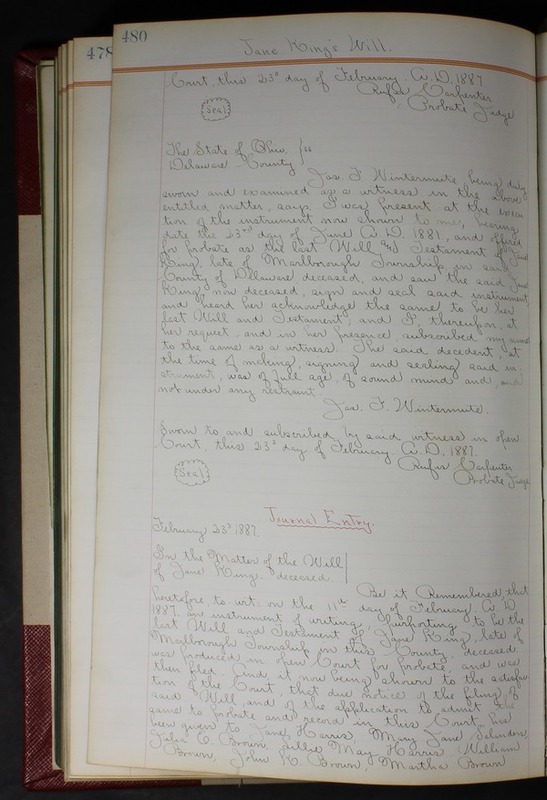 480
478
Jane King's Will.
Court, this 23d day of February A.D. 1887.
Rufus Carpenter
Probate Judge
Seal
The State of Ohio, } ss
Delaware County
Jas. F. Wintermute, being duly
sworn and examined as a witness in the above
entitled matter, says, I was present at the execu
tion of the instrument now shown to me, bearing
date the 23rd day of June A.D. 1881, and offered
for probate as the last Will and Testament of Jane
King, late of Marlborough Township, in said
County of Delaware deceased, and saw the said Jane
King now deceased, sign and seal said instrument
and heard her acknowledge the same to be her
last Will and Testament, and I, thereupon, at
her request, and in her presence, subscribed my name
to the same as a witness. The said decedent, at
the time of making, signing and sealing said in
strument, was of full age, of sound mind and, and
not under any restraint.
Jas. F. Wintermute.
Sworn to and subscribed by said witness in open
Court, this 23d day of February A.D. 1887.
Rufus Carpenter
Probate Judge
Seal
Journal Entry.
February 23d 1887.
In the Matter of the Will
of Jane King, deceased.
Be it Remembered, that
heretofore to wit: on the 11th day of February A.D.
1887, an instrument of writing, purporting to be the
last Will and Testament of Jane King, late of
Marlborough Township in this County, deceased,
was produced in open Court for probate and was
then filed. And it now being shown to the satisfac
tion of the Court, that due notice of the filing of
said Will, and of the application to admit the
same to probate and record in this Court, has
been given to Jane Harris, Mary Jane Saunders,
C. Brown, May Harris, William
Brown, John K. Brown, Martha Brown